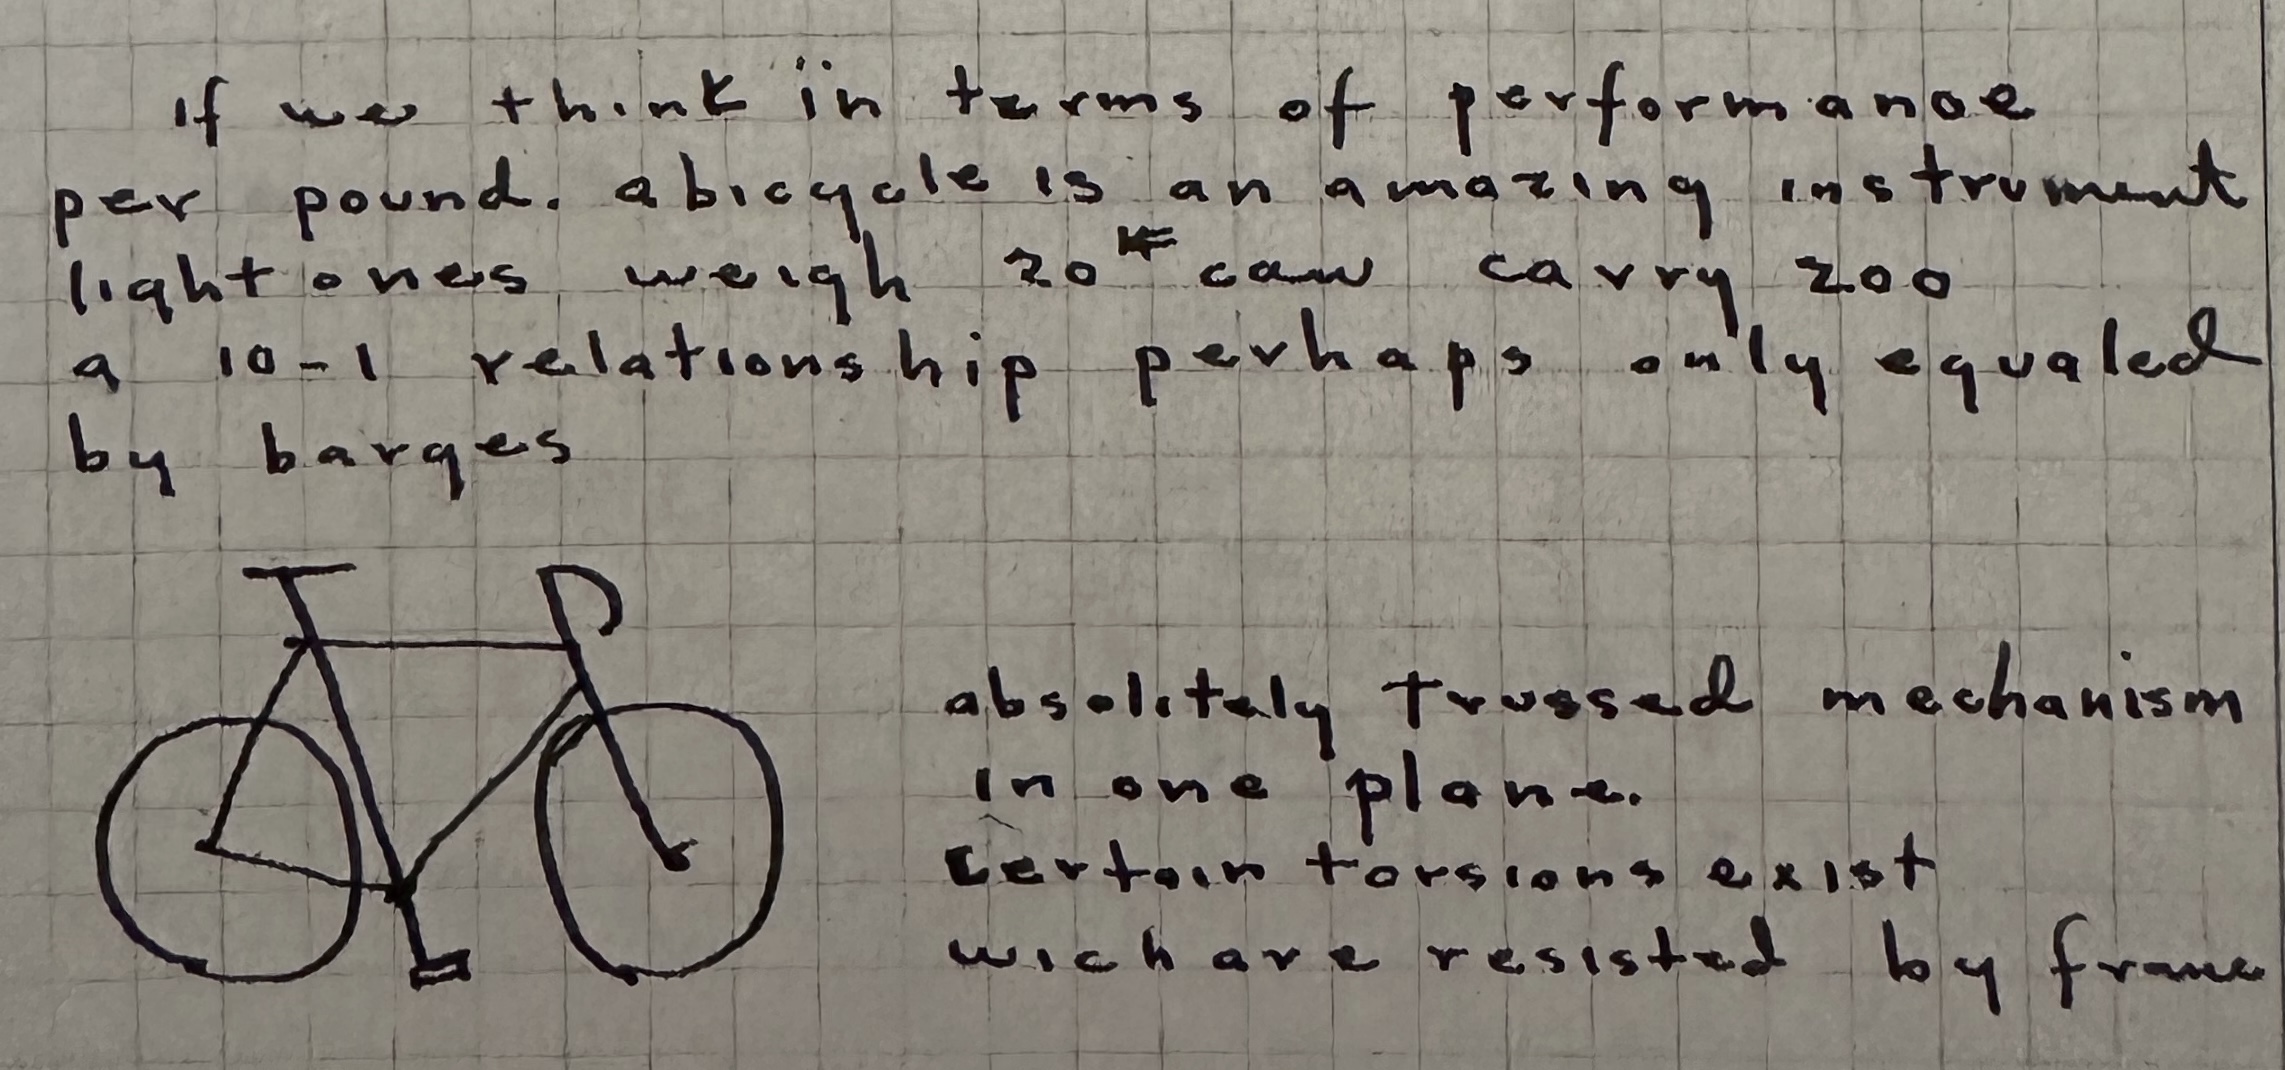 if we think in terms of performance
per pound. a bicycle is an amazing instrument
light ones weigh 20# can carry 200
a 10-1 relationship perhaps only equaled
by barges
absolitely trussed mechanism
in one plane.
certain torsions exist
wich are resisted by frame